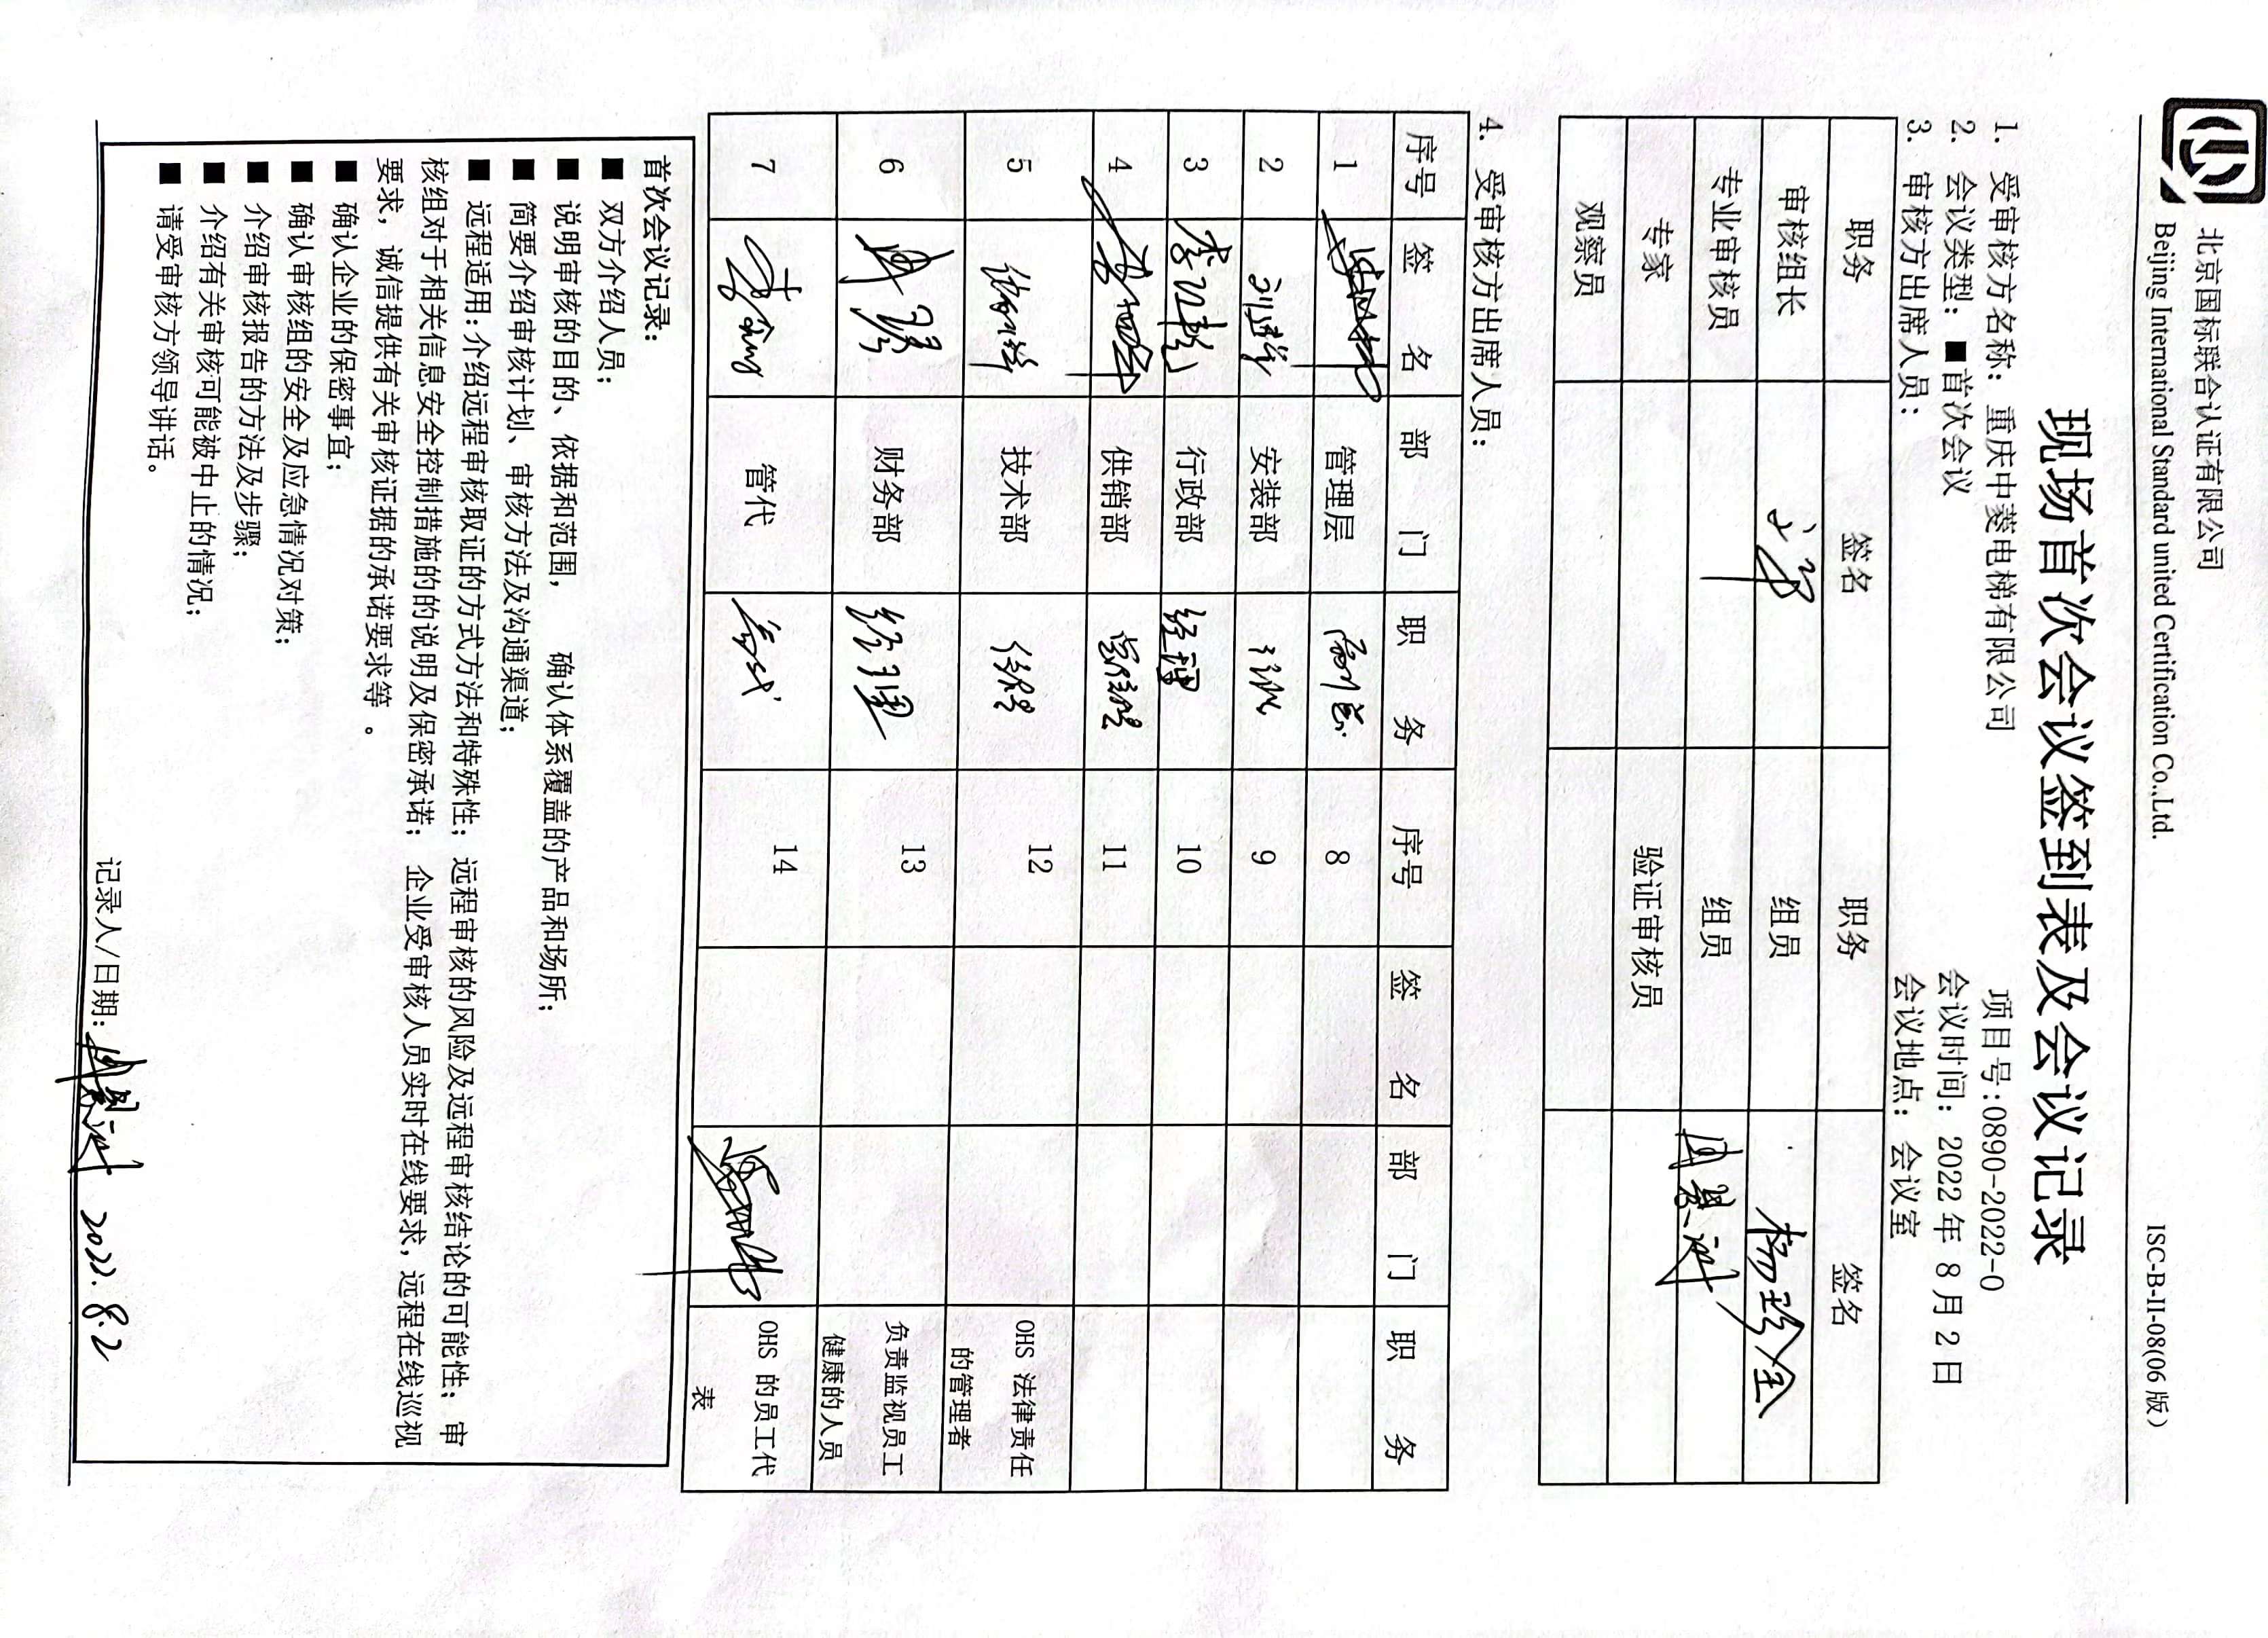 北京国标联合认证有限公司
Beijing International Standard united Certification Co.,Ltd.
ISC-B-II-08(06 版)
现场首次会议签到表及会议记录
项目号:0890-2022-0
1. 受审核方名称: 重庆中菱电梯有限公司
2. 会议类型: ■首次会议 会议时间: 2022 年 8 月 2 日
3. 审核方出席人员: 会议地点: 会议室
职务 签名 职务 签名
审核组长 组员 杨珍全
专业审核员 组员
专家 验证审核员
观察员
4. 受审核方出席人员:
序号 签 名 部 门 职 务 序号 签 名 部 门 职 务
1 管理层 副总 8
2 安装部 9
3 行政部 经理 10
4 供销部 11
5 技术部 12 OHS 法律责任的管理者
6 财务部 经理 13 负责监视员工健康的人员
7 管代 14 OHS 的员工代表
首次会议记录:
■ 双方介绍人员;
■ 说明审核的目的、依据和范围, 确认体系覆盖的产品和场所;
■ 简要介绍审核计划、审核方法及沟通渠道;
■ 远程适用:介绍远程审核取证的方式方法和特殊性; 远程审核的风险及远程审核结论的可能性; 审
核组对于相关信息安全控制措施的的说明及保密承诺; 企业受审核人员实时在线要求, 远程在线巡视
要求, 诚信提供有关审核证据的承诺要求等 。
■ 确认企业的保密事宜;
■ 确认审核组的安全及应急情况对策;
■ 介绍审核报告的方法及步骤;
■ 介绍有关审核可能被中止的情况;
■ 请受审核方领导讲话。
记录人/日期: 2022.8.2